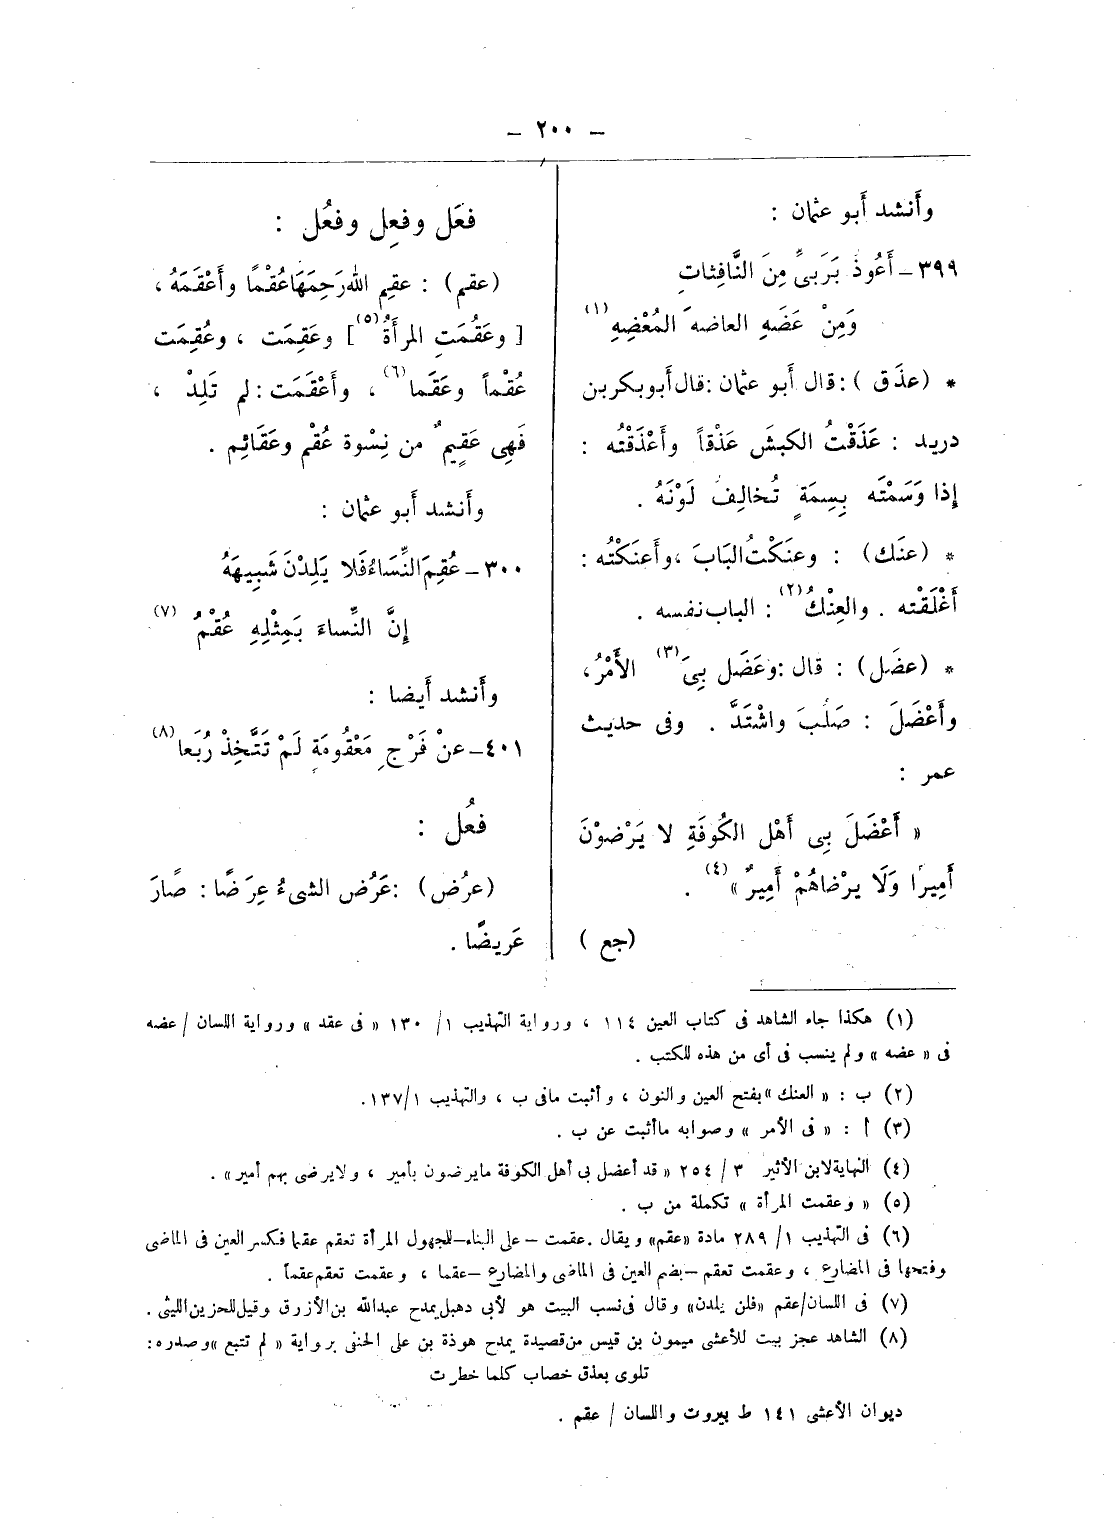 – ٢٠٠ –
وأَنشد أَبو عثمان :
٣٩٩ – أَعُوذُ بَرَبىِّ مِنَ النَّافِثاتِ
وَمِنْ عَضَهِ العاضهَ المُعْضِهِ (١)
* (عذَق ) : قال أَبو عثمان : قال أَبو بكر بن
دريد : عَذَقْتُ الكبشَ عَذْقاً وأَعْذَقْتُه :
إِذا وَسَمْتَه بِسِمَةٍ تُخالِفُ لَوْنَهُ .
* (عنَك) : وعنَكْتُ البَابَ ، وأَعنَكْتُه :
أَغْلَقْته . والعِنْكُ (٢) : الباب نفسه .
* (عضَل) : قال : وعَضَل بِىَ (٣) الأَمْرُ ،
وأَعْضَلَ : صَلُبَ واشْتَدَّ . وفى حديث
عمر :
« أَعْضَلَ بِى أَهْل الكُوفَةِ لا يَرْضوْنَ
أَمِيرًا وَلَا يرْضاهُمْ أَمِيرٌ » (٤) .
(جع )
فعَل وفعِل وفعُل :
(عقم) : عقِم الله رَحِمَهَا عُقْمًا وأَعْقَمَهُ ،
[ وعَقُمَتِ المرأَةُ (٥) ] وعَقِمَت ، وعُقِمَت
عُقْماً وعَقَما (٦) ، وأَعْقَمَت : لم تَلِدْ ،
فَهِى عَقِيمٌ من نِسْوة عُقْم وعَقَائِم .
وأَنشد أَبو عثمان :
٣٠٠ – عُقِمَ النِّسَاءُ فَلا يَلِدْنَ شَبِيهَهُ
إِنَّ النِّساءَ بَمِثْلِهِ عُقْمُ (٧)
وأَنشد أَيضا :
٤٠١ – عنْ فَرْجِ مَعْقُومَةٍ لَمْ تَتَّخِذْ رُبَعا (٨)
فعُل :
(عرُض) : عَرُض الشىءُ عِرَضًا : صَارَ
عَريضًا .
(١) هكذا جاء الشاهد فى كتاب العين ١١٤ ، ورواية التهذيب ١/ ١٣٠ « فى عقد » ورواية اللسان / عضه
فى « عضه » ولم ينسب فى أى من هذه الكتب .
(٢) ب : « العنك » بفتح العين والنون ، وأثبت مافى ب ، والتهذيب ١/ ١٣٧.
(٣) أ : « فى الأمر » وصوابه ماأثبت عن ب .
(٤) النهاية لابن الأثير ٣ / ٢٥٤ « قد أعضل بى أهل الكوفة مايرضون بأمير ، ولايرضى بهم أمير » .
(٥) « وعقمت المرأة » تكملة من ب .
(٦) فى التهذيب ١/ ٢٨٩ مادة «عقم» ويقال . عقمت – على البناء – للجهول المرأة تعقم عقما فكسر العين فى الماضى
وفتحها فى المضارع ، وعقمت تعقم – بضم العين فى الماضى والمضارع – عقما ، وعقمت تعقم عقماً .
(٧) فى اللسان/عقم «فلن يلدن» وقال فى نسب البيت هو لأبى دهبل يمدح عبدالله بن الأزرق وقيل للحزين الليثى .
(٨) الشاهد عجز بيت للأعشى ميمون بن قيس من قصيدة يمدح هوذة بن على الحنفى برواية « لم تتبع » وصدره :
تلوى بعذق خصاب كلما خطرت
ديوان الأعشى ١٤١ ط بيروت واللسان / عقم .